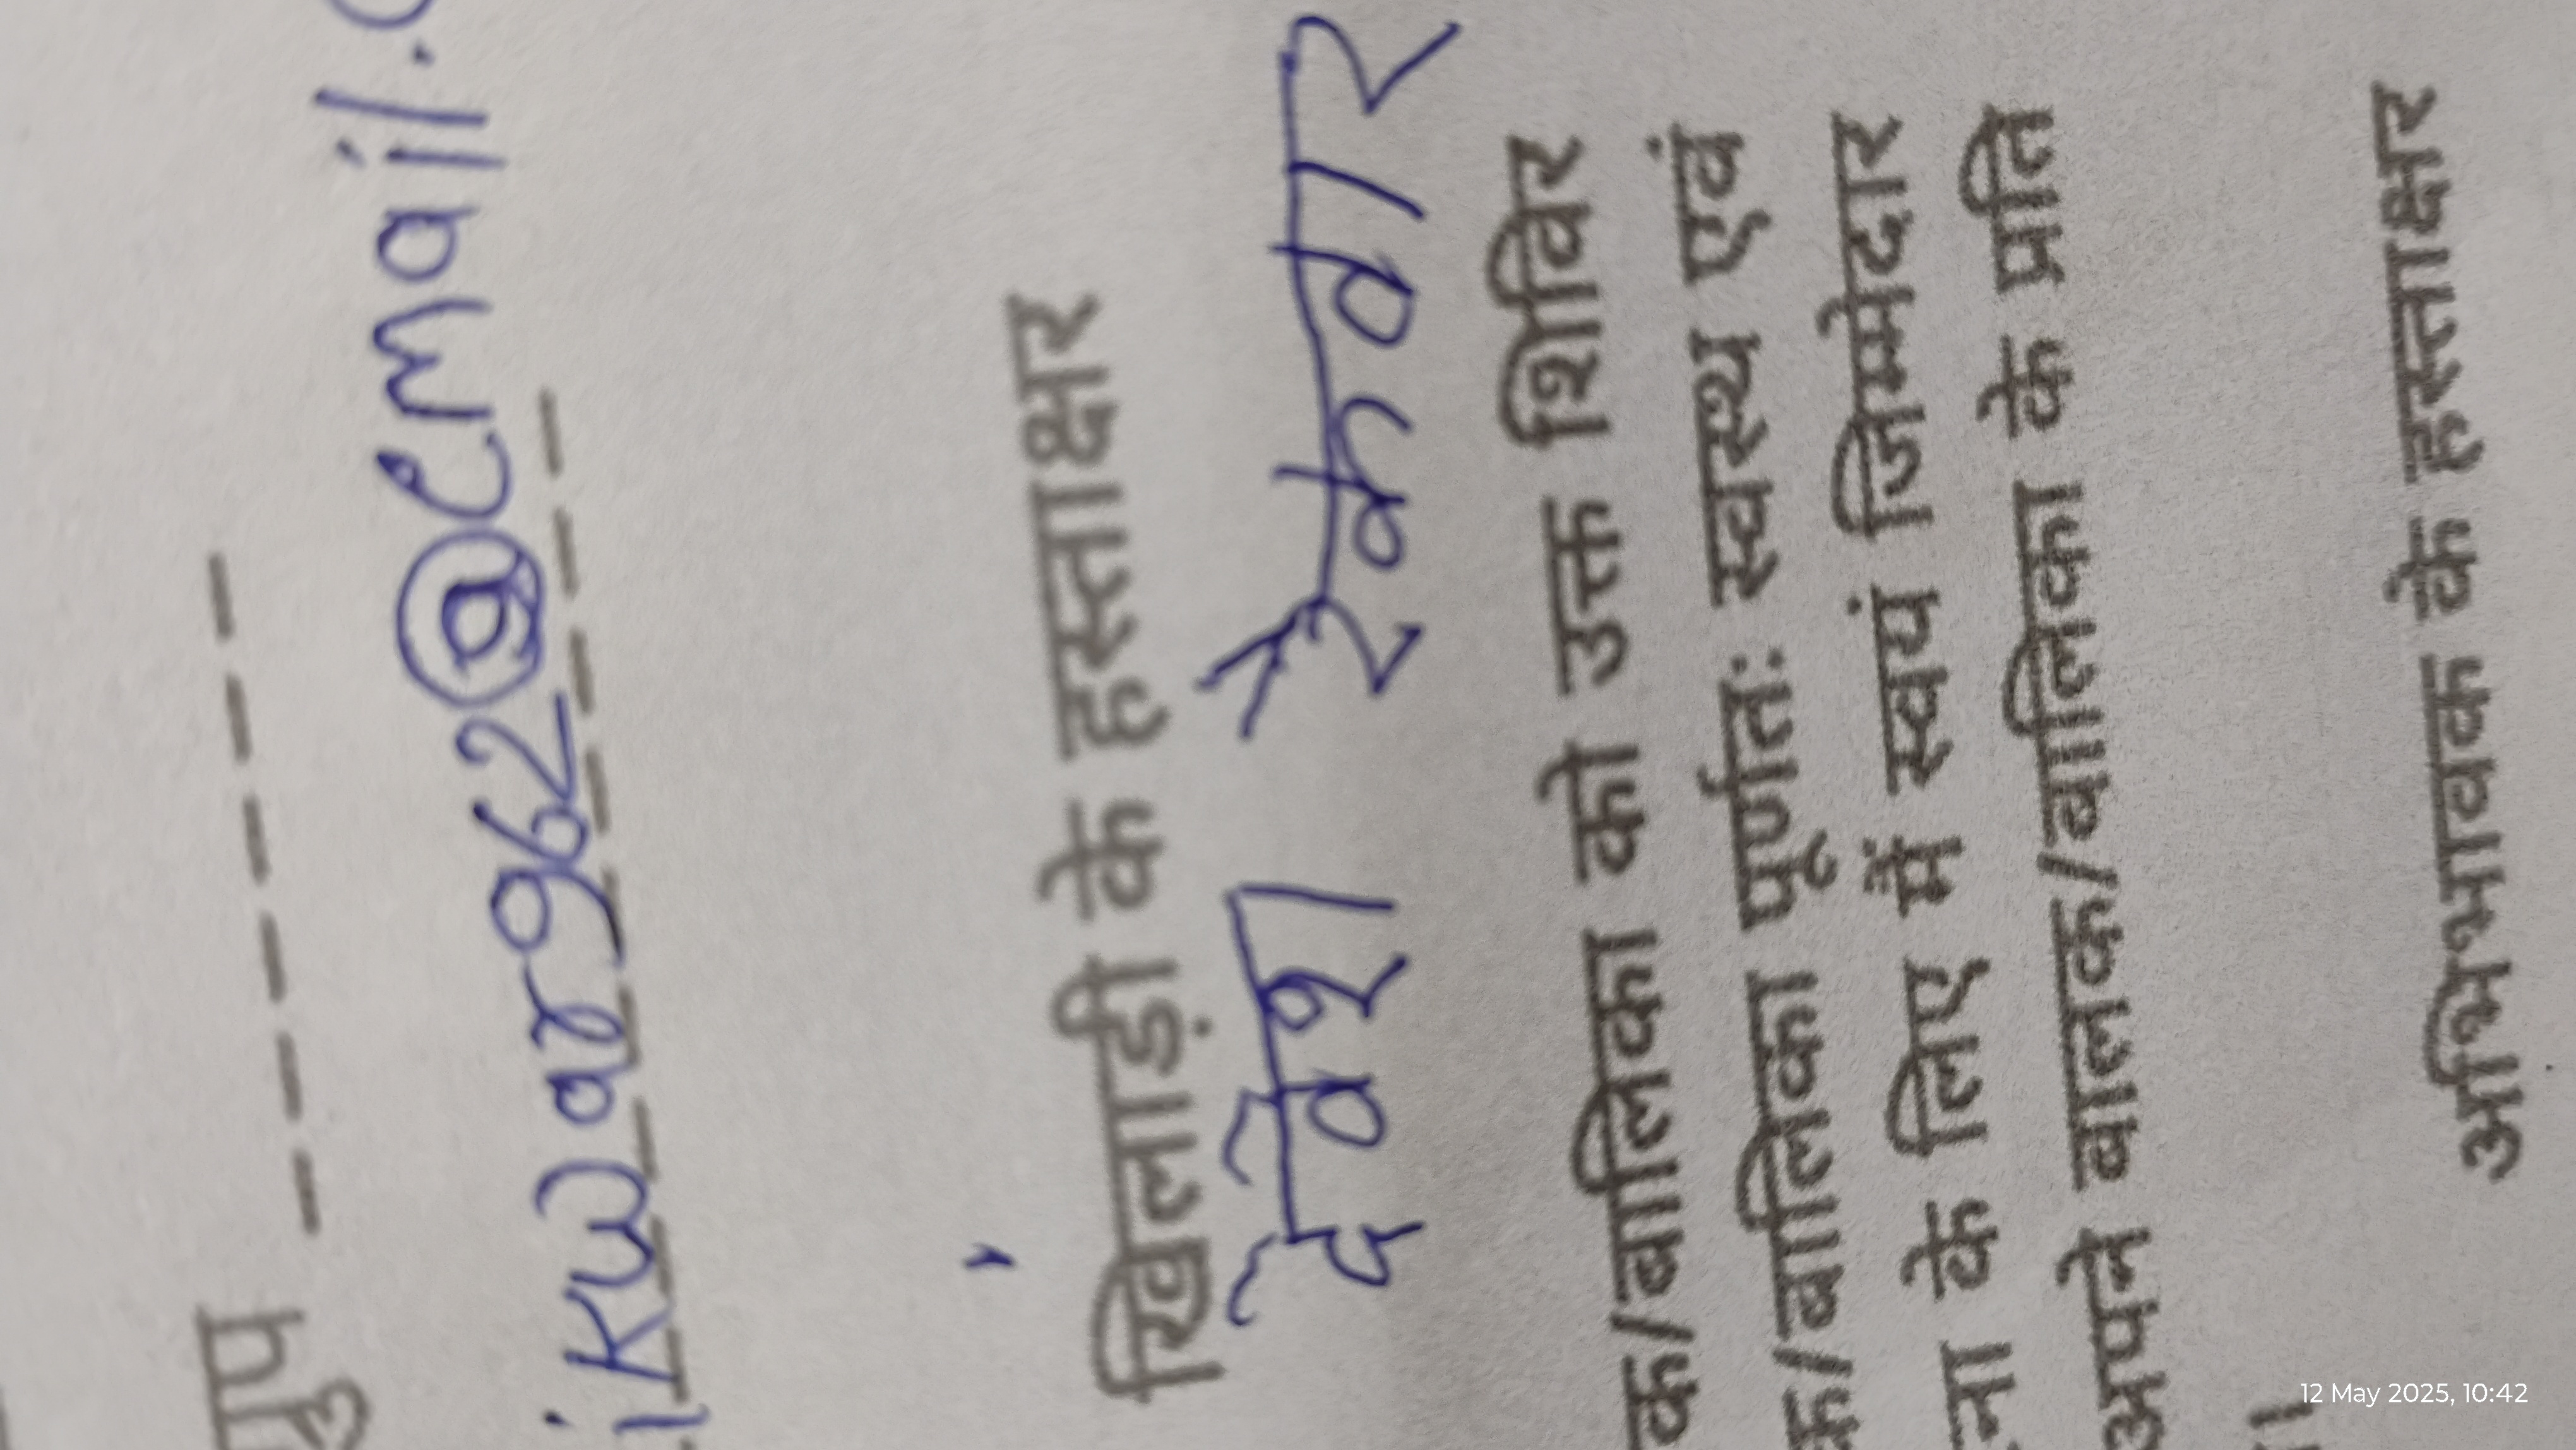 ुप
ikwar962@Gmail.
खिलाड़ी के हस्ताक्षर
देवेश रैकवार
क/बालिका को उक्त शिविर
क/बालिका पूर्णतः स्वस्थ्य एवं
ना के लिए मैं स्वयं जिम्मेदार
अपने बालक/बालिका के प्रति
अभिभावक के हस्ताक्षर
12 May 2025, 10:42